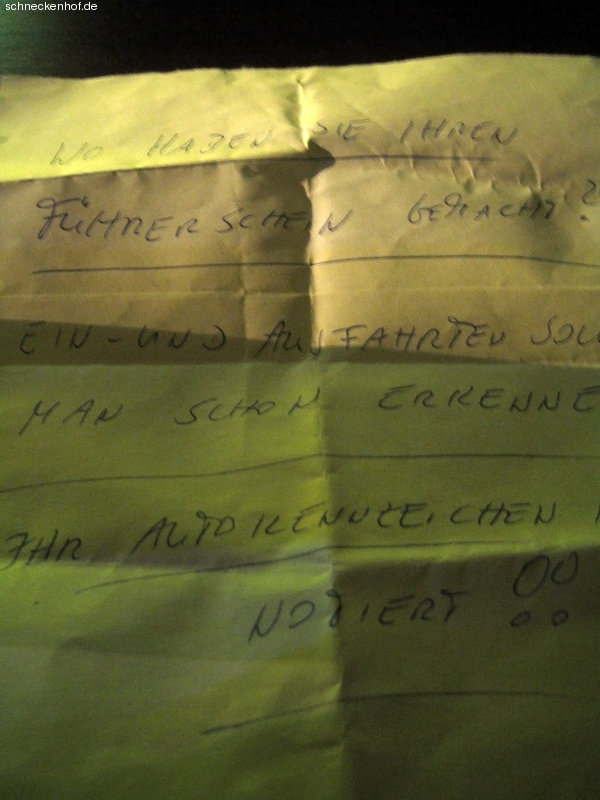 schneckenhof.de
WO HABEN SIE IHREN
FÜHRERSCHEIN GEMACHT?
EIN-UND AUSFAHRTEN SOLL
MAN SCHON ERKENNE
IHR AUTOKENNZEICHEN
NOTIERT !!